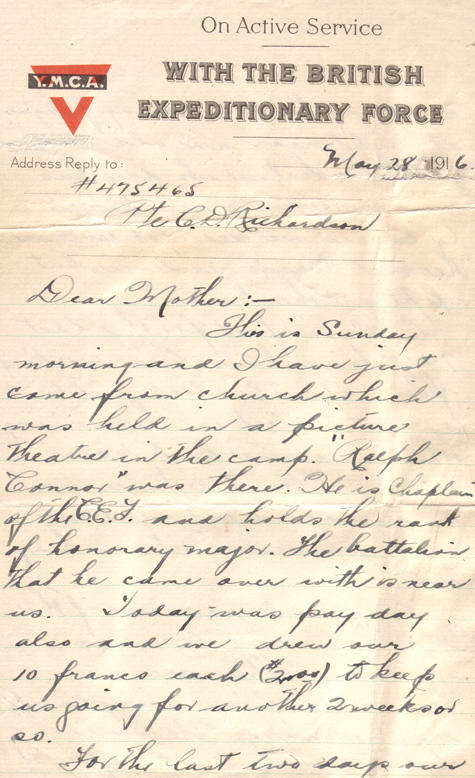 On Active Service
WITH THE BRITISH
EXPEDITIONARY FORCE
Y.M.C.A.
Address Reply to:
May 28 1916.
#475465
Pte C.D. Richardson
Dear Mother:-
This is Sunday
morning and I have just
come from church which
was held in a picture
theatre in the camp. "Ralph
Connor" was there. He is Chaplain
of the C.E.F. and holds the rank
of honorary major. The battalion
that he came over with is near
us. Today was pay day
also and we drew our
10 francs each ($2.00) to keep
us going for another 2 weeks or
so.
For the last two days our